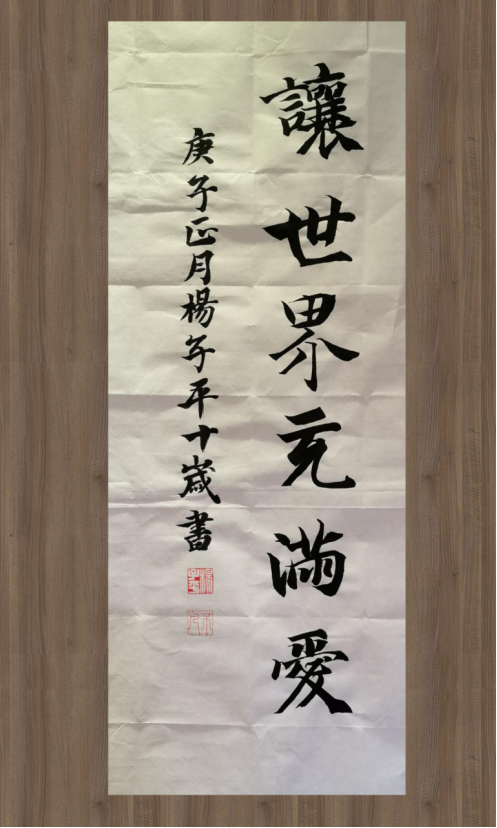 讓世界充滿愛
庚子正月楊子平十歲書